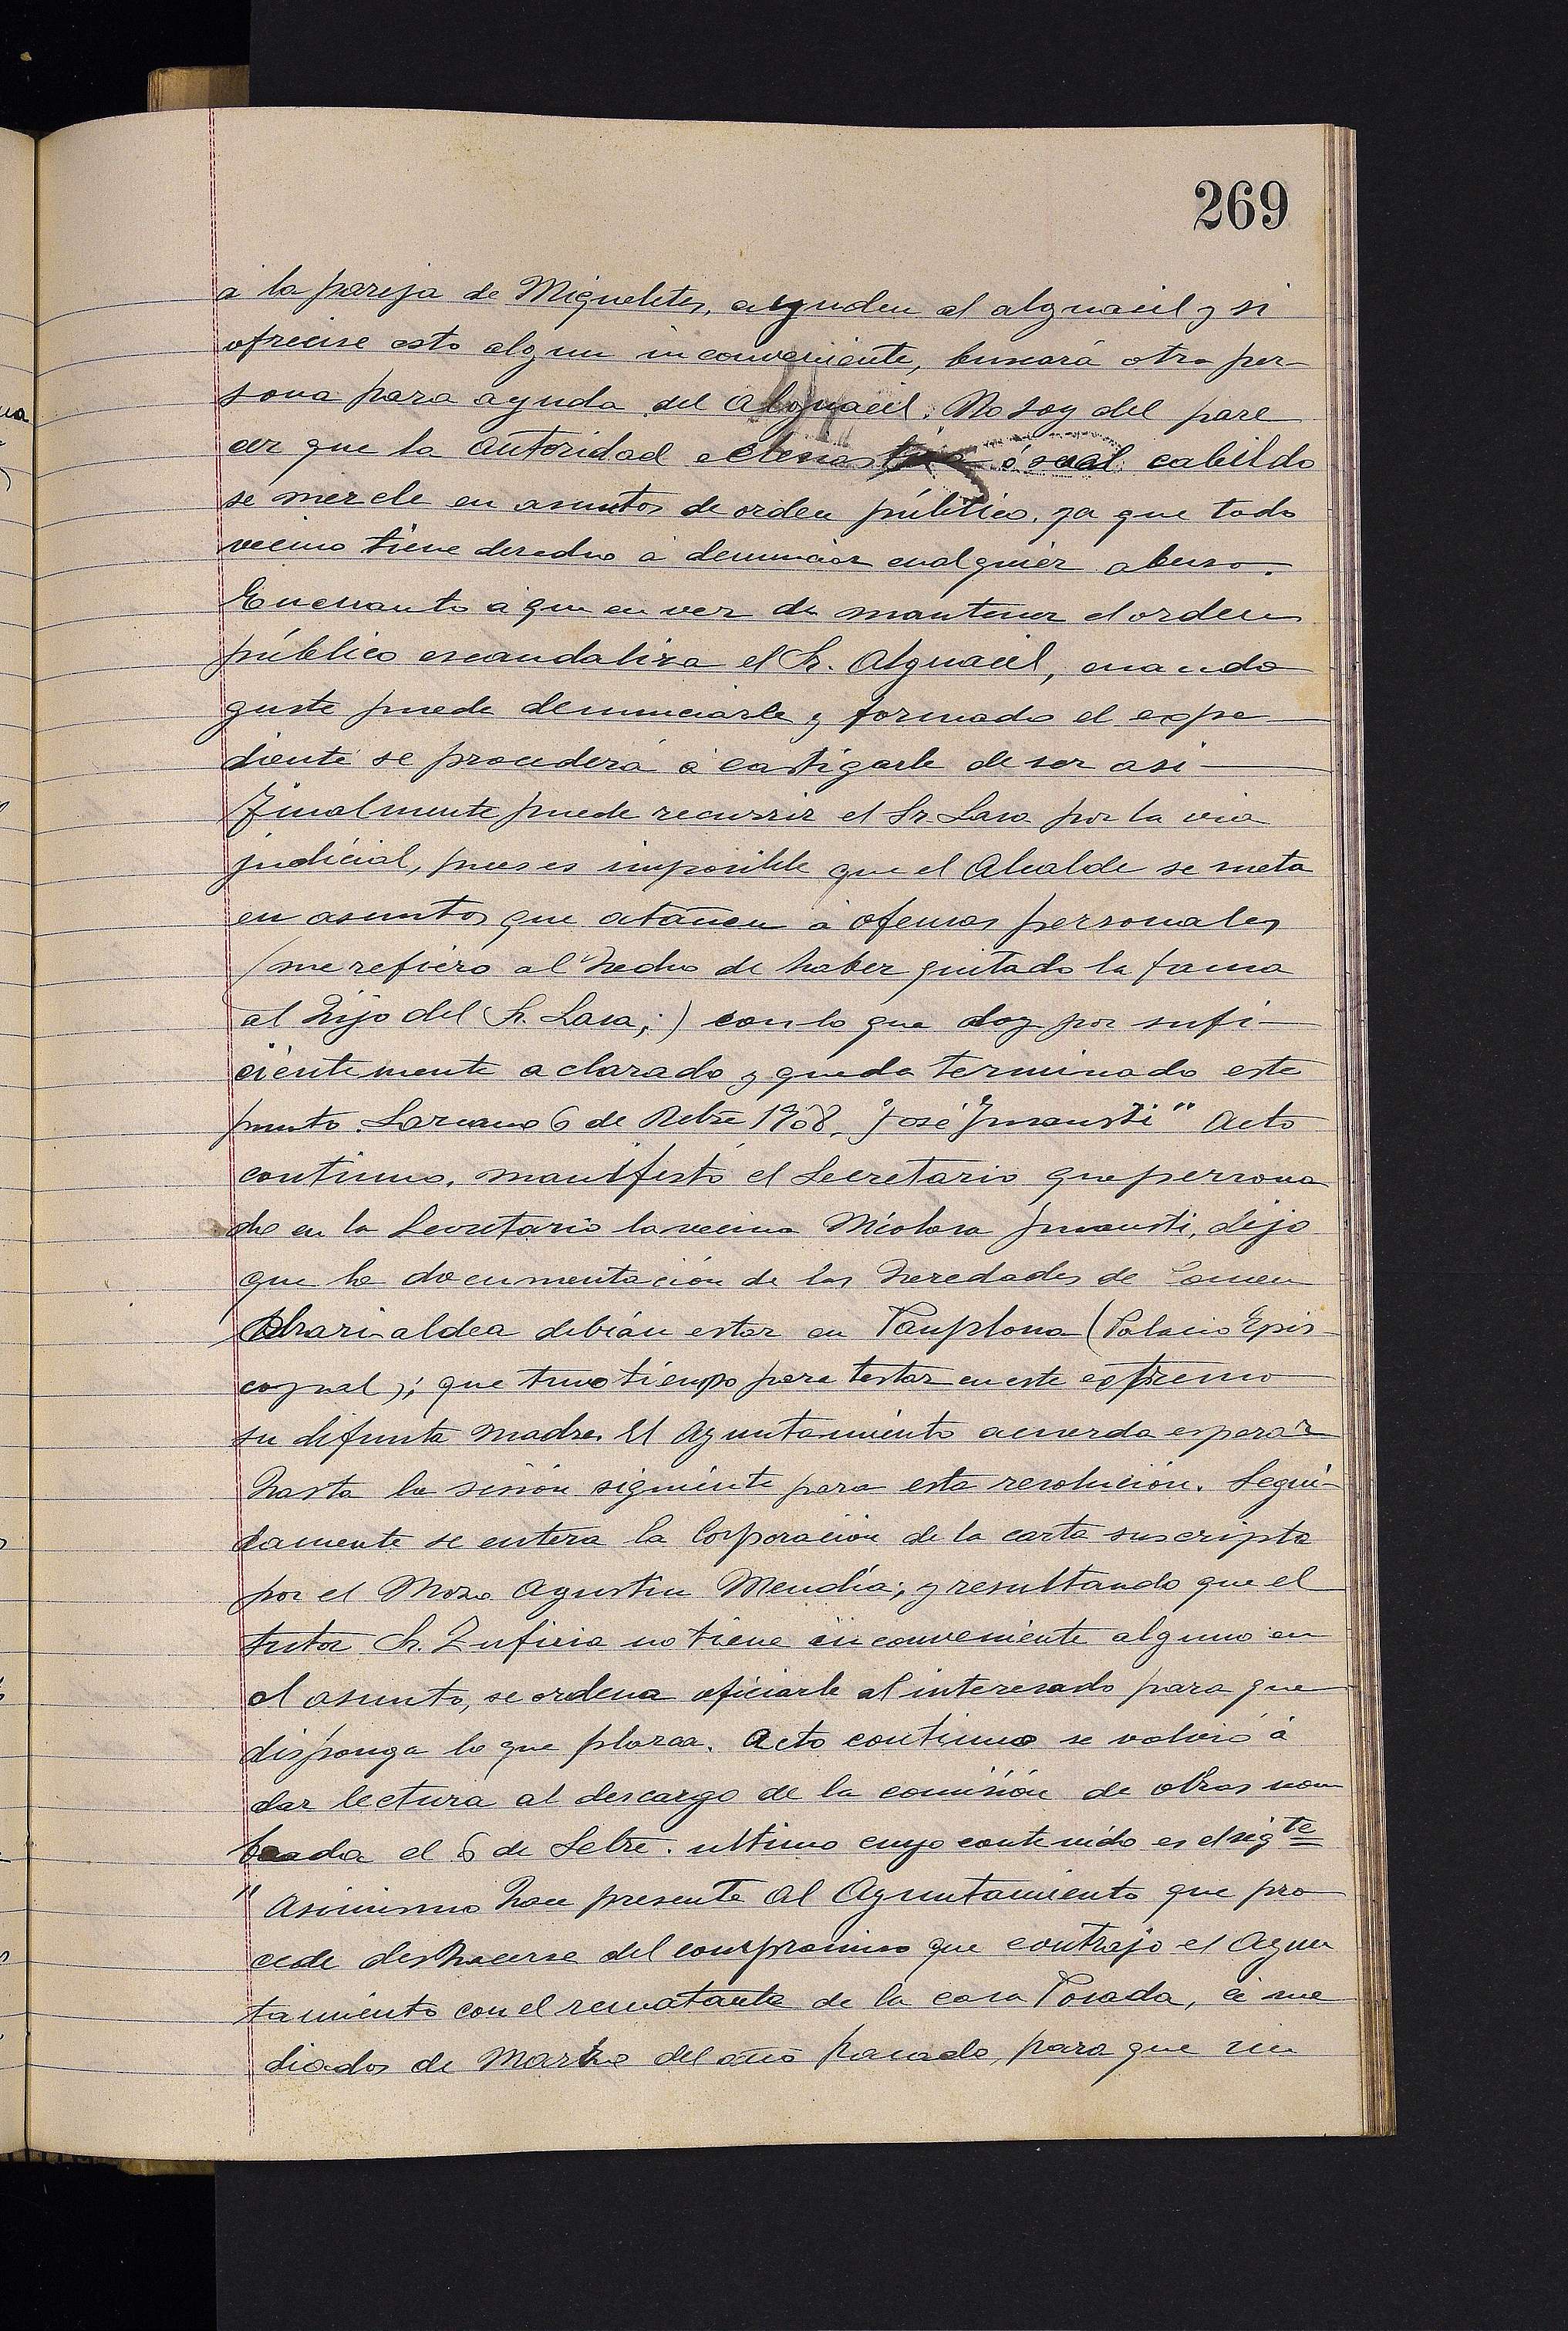 269
á la pareja de Migueletes, ayuden al alguacil y si
ofreciese esto algun inconveniente, buscará otra per-
sona para ayuda del Alguacil. No soy del pare
cer que la autoridad eclesiastica ó sea el cabildo
se mezcle en asuntos de orden público, ya que todo
vecino tiene derecho á denunciar cualquier abuso.
En cuanto á que en vez de mantener el orden
público escandaliza el Sr. Alguacil, cuando
guste puede denunciarle y formado el expe
diente se procederá á castigarle de ser asi
Finalmente puede recurrir el Sr. Lasa por la via
judicial, pues es imposible que el Alcalde se meta
en asuntos que atañen á ofensas personales
(me refiero al hecho de haber quitado la fama
al hijo del Sr. Lasa;) con lo que doy por sufi-
cientemente aclarado y queda terminado este
punto. Lazcano 6 de Octe 1908. "José Ymausti" Acto
continuo, manifestó el Secretario que persona
do en la Secretaria la vecina Nicolasa Ymausti, dijo
que la documentación de las heredades de
aldea debián estar en Pamplona (Palacio Epis-
copal); que tuvo tiempo para testar en este extremo
su difunta madre. El Ayuntamiento acuerda esperar
hasta la sesión siguiente para esta resolución. Segui-
damente se entera la Corporación de la carta suscripta
por el Mozo Agustin Mendía; y resultando que el
tutor Sr. Zufiria no tiene inconveniente alguno en
el asunto, se ordena oficiarle al interesado para que
disponga lo que plazca. Acto continuo se volvió á
dar lectura al descargo de la comisión de obras nom
brada el 6 de Setre. ultimo cuyo contenido es el sigte
"Asimismo hace presente al Ayuntamiento que pro
cede deshacerse del compromiso que contrajo el Ayun
tamiento con el rematante de la casa Posada, á me
diados de Marzo del año pasado, para que sin